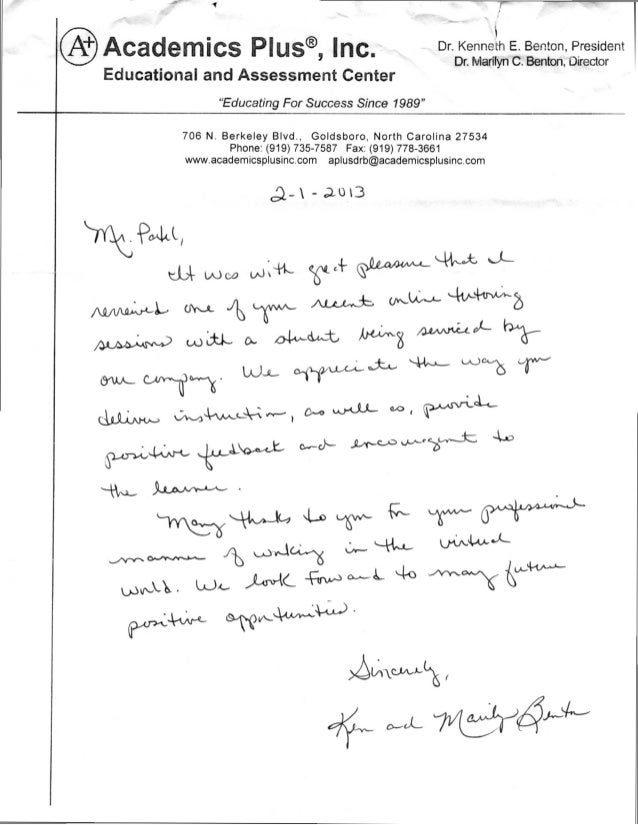 A+ Academics Plus®, Inc.
Educational and Assessment Center
Dr. Kenneth E. Benton, President
Dr. Marilyn C. Benton, Director
"Educating For Success Since 1989"
706 N. Berkeley Blvd., Goldsboro, North Carolina 27534
Phone: (919) 735-7587 Fax: (919) 778-3661
www.academicsplusinc.com aplusdrb@academicsplusinc.com
2-1-2013
Mr. Patel,
It was with great pleasure that I
reveiwed one of your recent online tutoring
sessions with a student being serviced by
our company. We appreciate the way you
deliver instruction, as well as, provide
positive feedback and encouragment to
the learner.
Many thanks to you for your professional
manner of working in the virtual
world. We look forward to many future
positive opportunities.
Sincerely,
Ken and Marilyn Benton